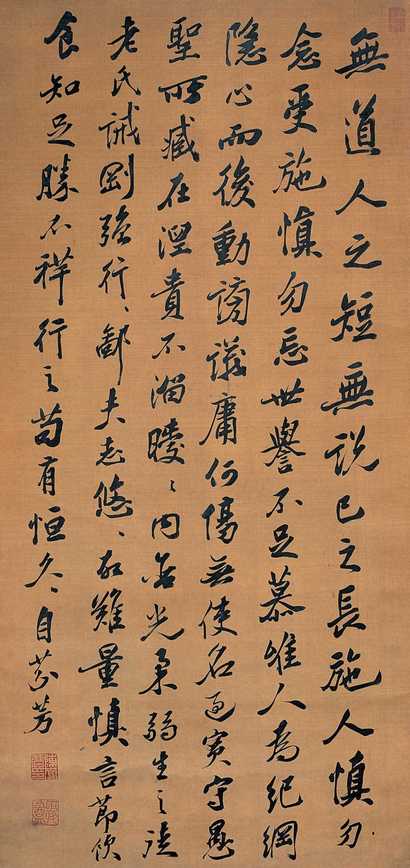 無道人之短無説己之長施人慎勿
念受施慎勿忘世譽不足慕唯人為紀綱
隱心而後動謗議庸何傷無使名過實守愚
聖所臧在涅貴不淄曖〻内含光柔弱生之徒
老氏誡剛強行〻鄙夫志悠〻故難量慎言節飲
食知足勝不祥行之苟有恒久〻自芬芳